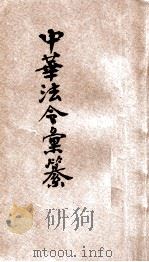 中華法令彙纂
mtoou.info